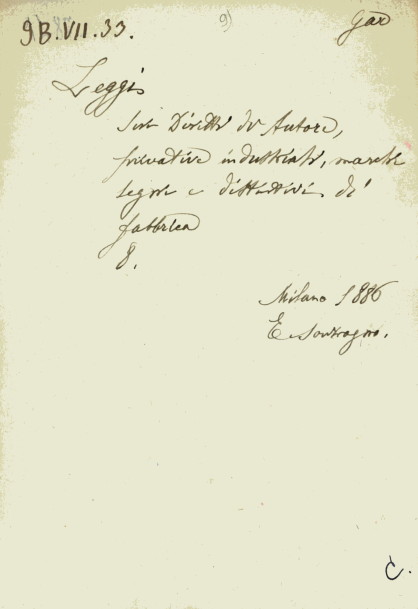 9B.VII.33.
9)
Gar
Leggi
sui Diritti di Autore,
privative industriali, marchi
segni e distintivi di
fabbrica
8.
Milano 1886
E. Sonzogno.
C.